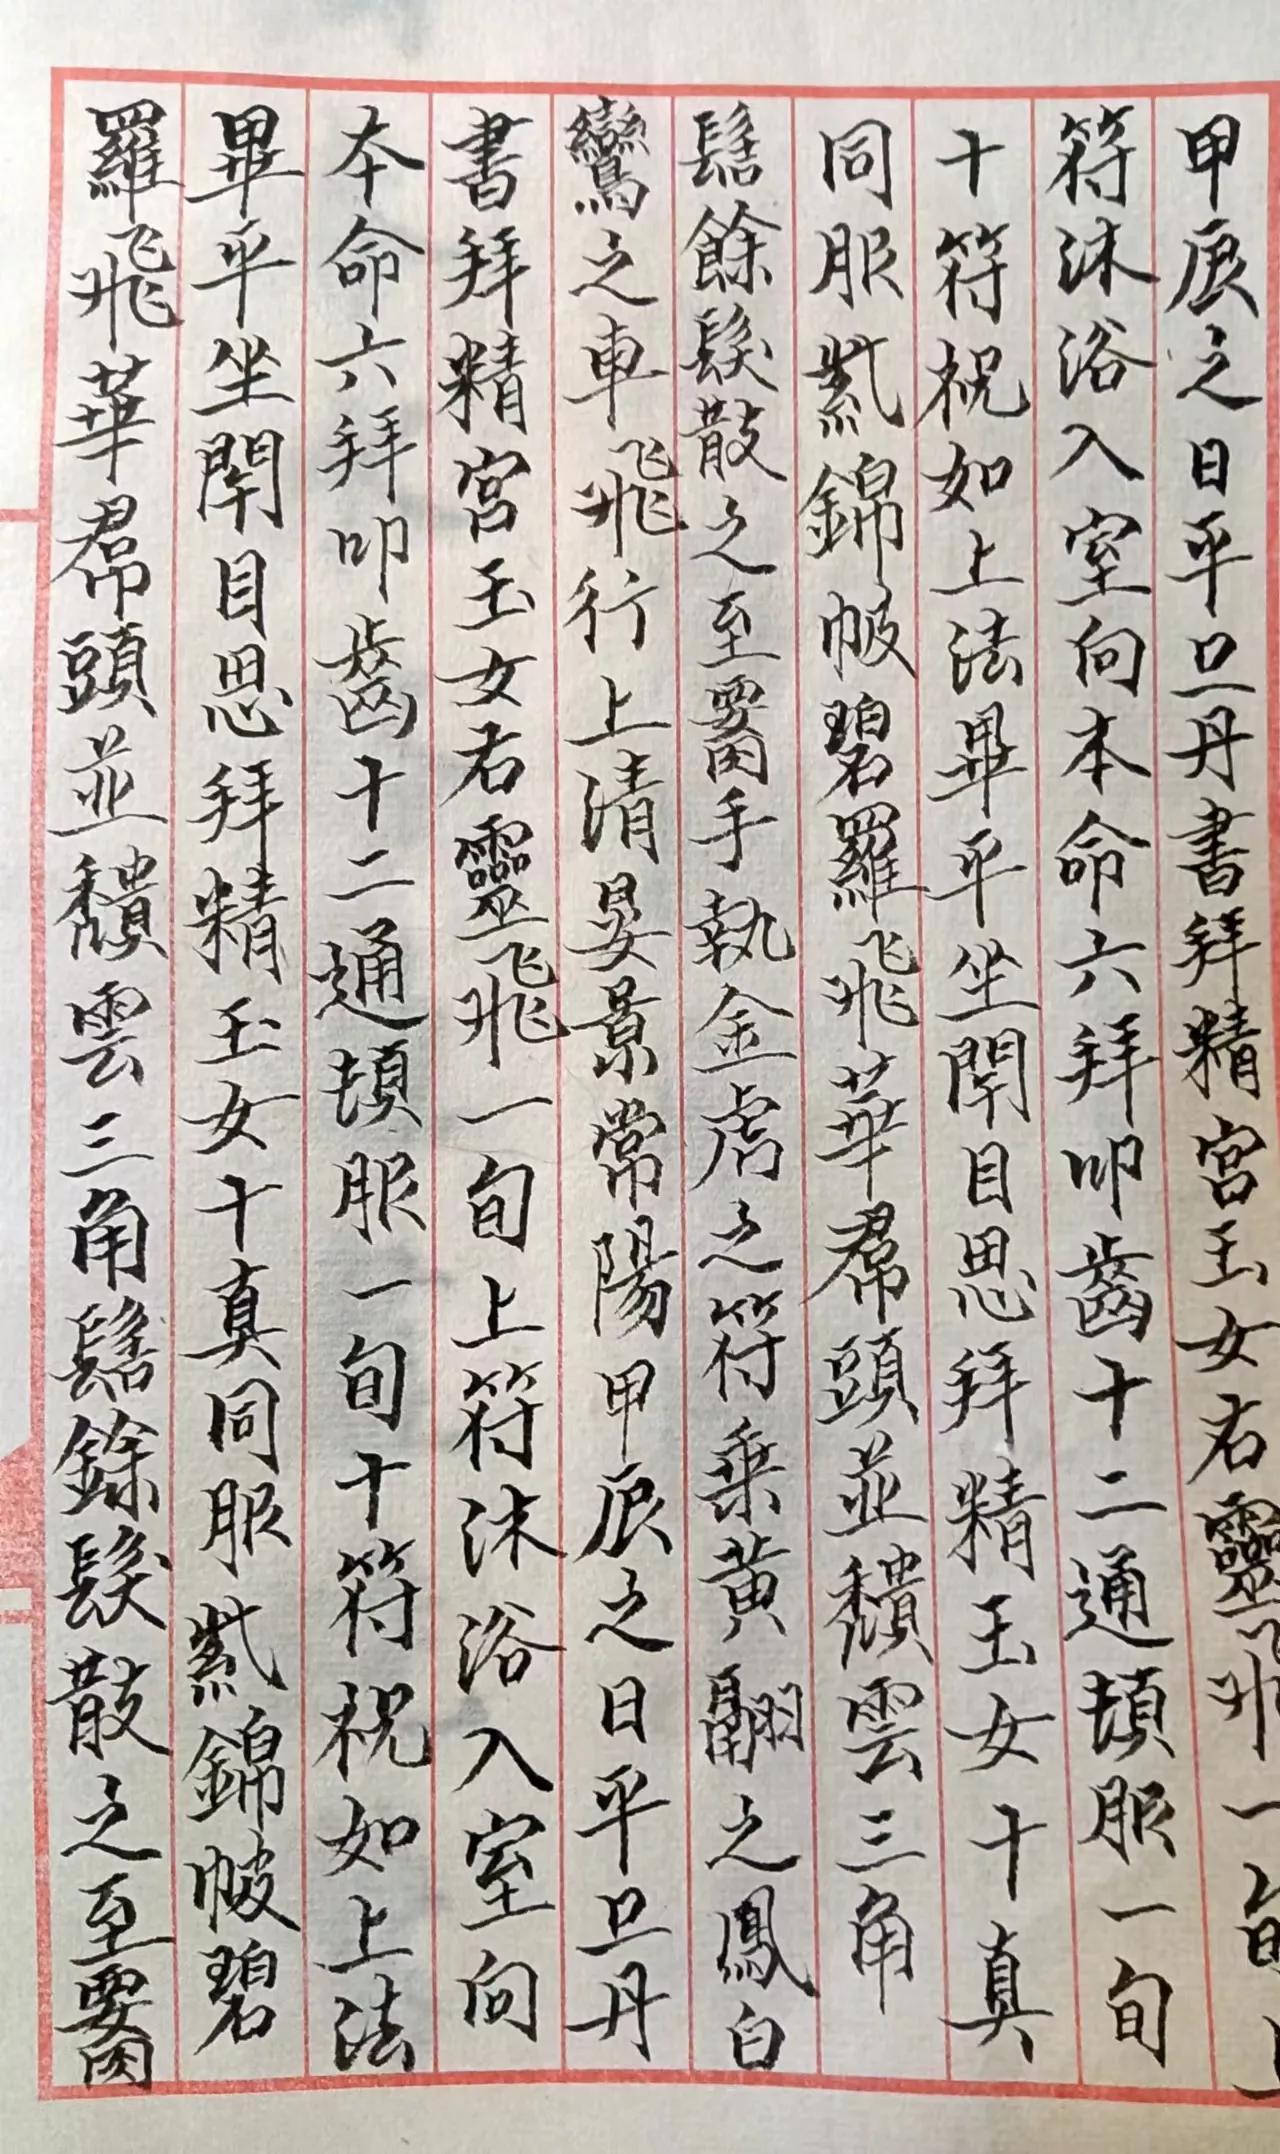 甲辰之日平旦丹書拜精宮玉女右靈飛一旬上
符沐浴入室向本命六拜叩齒十二通頓服一旬
十符祝如上法畢平坐閉目思拜精玉女十真
同服紫錦帔碧羅飛華帬頭並穨雲三角
髻餘髮散之至署手執金虎之符乘黃翮之鳳白
鸞之車飛行上清晏景常陽甲辰之日平旦丹
書拜精宮玉女右靈飛一旬上符沐浴入室向
本命六拜叩齒十二通頓服一旬十符祝如上法
畢平坐閉目思拜精玉女十真同服紫錦帔碧
羅飛華帬頭並穨雲三角髻餘髮散之至